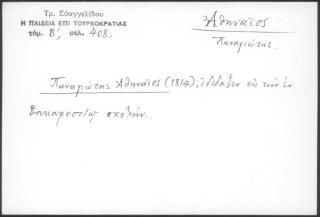 Τρ. Εὐαγγελίδου
Η ΠΑΙΔΕΙΑ ΕΠΙ ΤΟΥΡΚΟΚΡΑΤΙΑΣ
τόμ. Β', σελ. 408.
Ἀθηναῖος
Παναγιώτης.
Παναγιώτης Ἀθηναῖος (1814), ἐδίδαξεν εἰς τὴν ἐν
Βουκουρεστίῳ σχολήν.